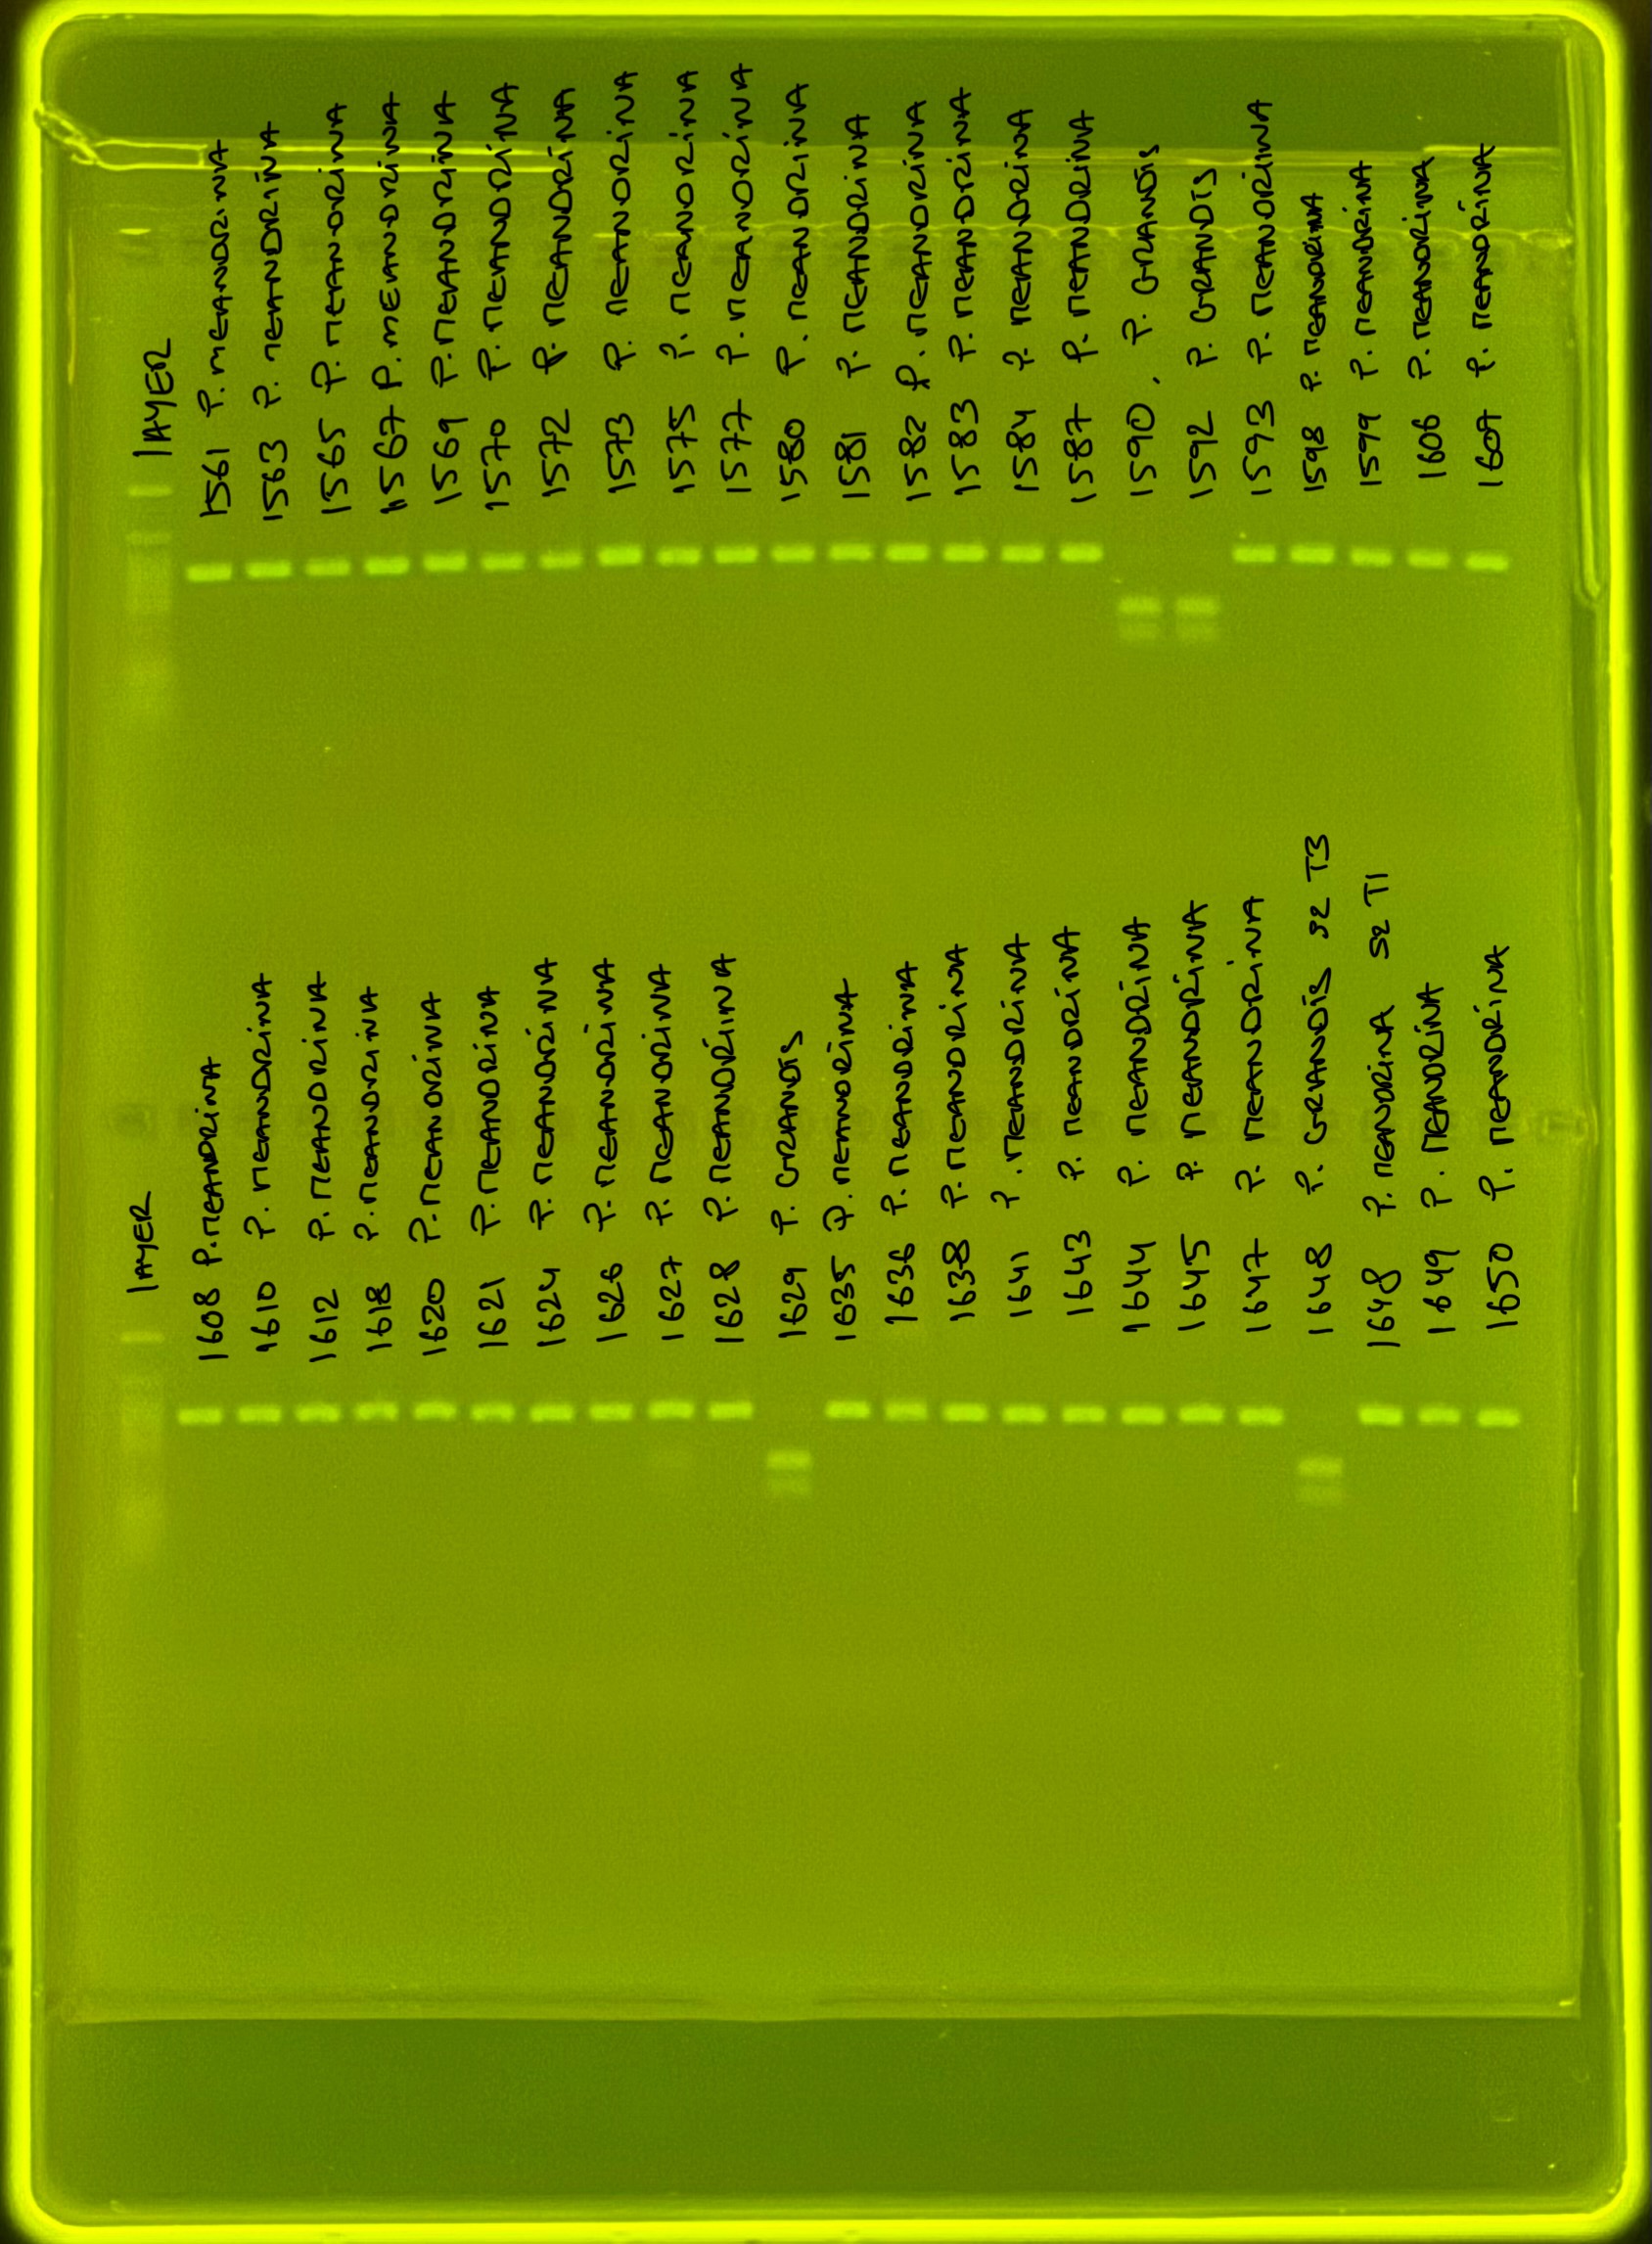 LAYER
1561 P. MEANDRINA
1563 P. MEANDRINA
1565 P. MEANDRINA
1567 P. MEANDRINA
1569 P. MEANDRINA
1570 P. MEANDRINA
1572 P. MEANDRINA
1573 P. MEANDRINA
1575 P. MEANDRINA
1577 P. MEANDRINA
1580 P. MEANDRINA
1581 P. MEANDRINA
1582 P. MEANDRINA
1583 P. MEANDRINA
1584 P. MEANDRINA
1587 P. MEANDRINA
1590. P. GRANDIS
1592 P. GRANDIS
1593 P. MEANDRINA
1598 P. MEANDRINA
1599 P. MEANDRINA
1606 P. MEANDRINA
1607 P. MEANDRINA
LAYER
1608 P. MEANDRINA
1610 P. MEANDRINA
1612 P. MEANDRINA
1618 P. MEANDRINA
1620 P. MEANDRINA
1621 P. MEANDRINA
1624 P. MEANDRINA
1626 P. MEANDRINA
1627 P. MEANDRINA
1628 P. MEANDRINA
1629 P. GRANDIS
1635 P. MEANDRINA
1636 P. MEANDRINA
1638 P. MEANDRINA
1641 P. MEANDRINA
1643 P. MEANDRINA
1644 P. MEANDRINA
1645 P. MEANDRINA
1647 P. MEANDRINA
1648 P. GRANDIS S2 T3
1648 P. MEANDRINA S2 T1
1649 P. MEANDRINA
1650 P. MEANDRINA